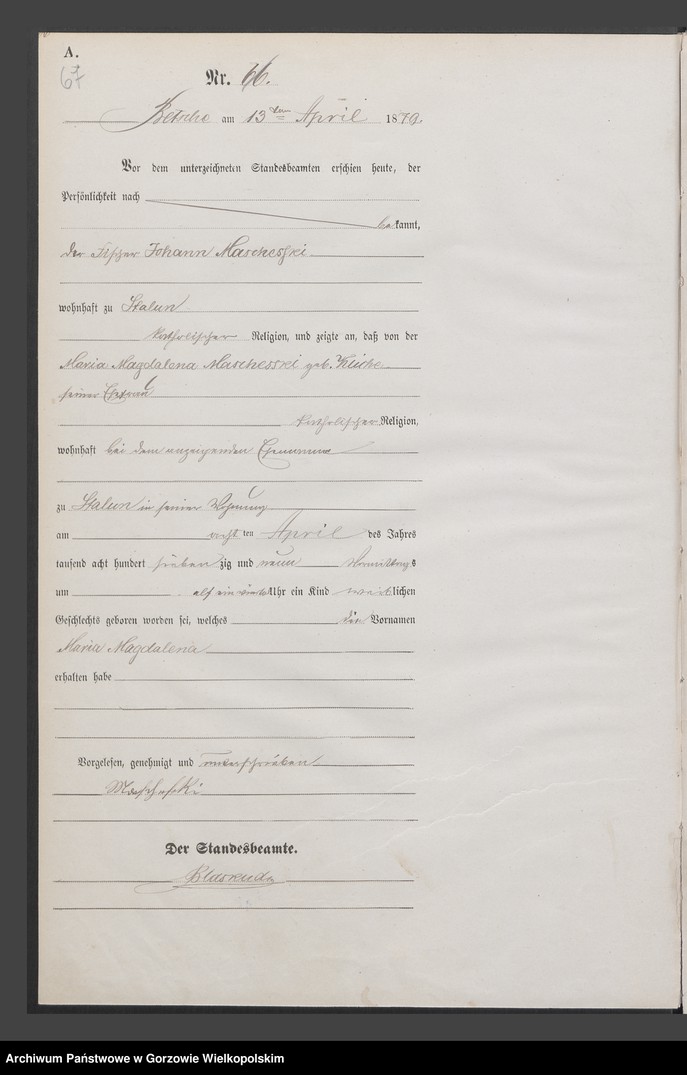 A.
67
Nr. 66.
Betsche am 13ten April 1879.
Vor dem unterzeichneten Standesbeamten erschien heute, der
Persönlichkeit nach
bekannt,
der Fischer Johann Mascheski
wohnhaft zu Stalun
katholischer Religion, und zeigte an, daß von der
Maria Magdalena Mascheski geb.
seiner Ehefrau
katholischer Religion,
wohnhaft bei dem anzeigenden Ehemanne
zu Stalun in seiner Wohnung
am acht ten April des Jahres
tausend acht hundert sieben zig und neun Vormittags
um elf ein viertel Uhr ein Kind weiblichen
Geschlechts geboren worden sei, welches die Vornamen
Maria Magdalena
erhalten habe
Vorgelesen, genehmigt und unterschrieben
Mascheski
Der Standesbeamte.
Archiwum Państwowe w Gorzowie Wielkopolskim